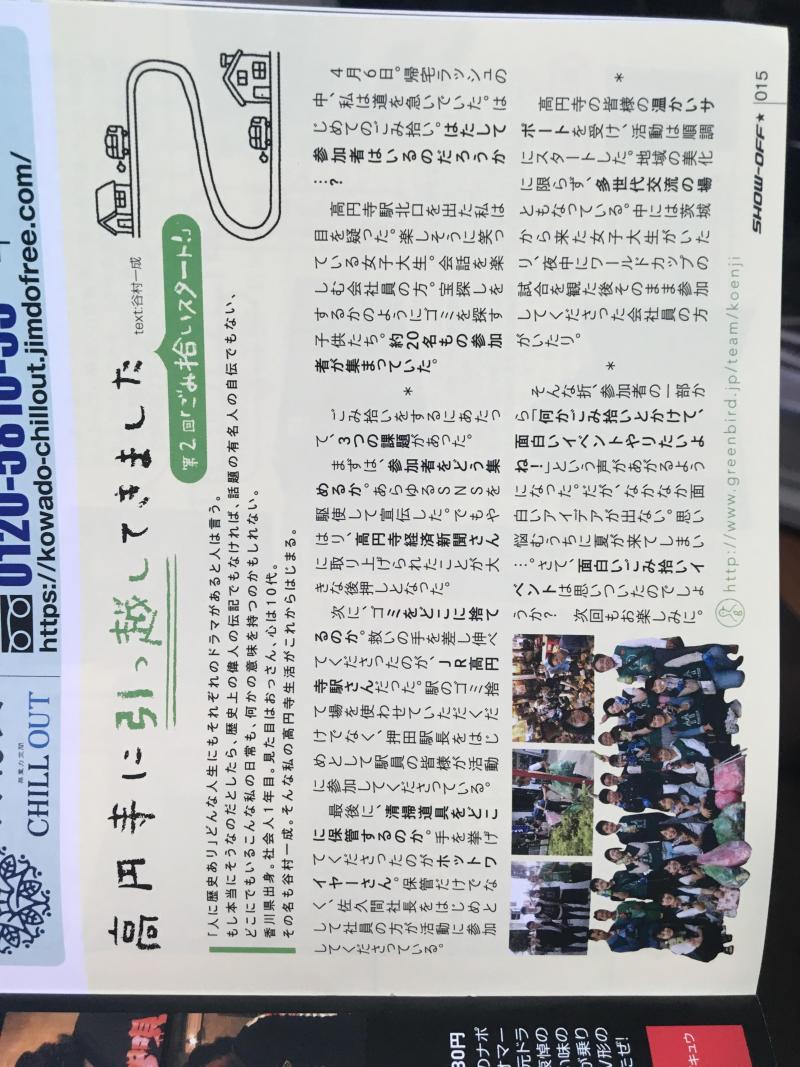 CHILL OUT
https://kowado-chillout.jimdofree.com/
高円寺に引っ越してきました
text:谷村一成
第2回「ごみ拾いスタート!」
「人に歴史あり」どんな人生にもそれぞれのドラマがあると人は言う。
もし本当にそうなのだとしたら、歴史上の偉人の伝記でもなければ、話題の有名人の自伝でもない、
どこにでもいるこんな私の日常も、何かの意味を持つのかもしれない。
香川県出身。社会人1年目。見た目はおっさん、心は10代。
その名も谷村一成。そんな私の高円寺生活がこれからはじまる。
4月6日。帰宅ラッシュの
中、私は道を急いでいた。は
じめてのごみ拾い。はたして
参加者はいるのだろうか
…?
高円寺駅北口を出た私は
目を疑った。楽しそうに笑っ
ている女子大生。会話を楽
しむ会社員の方。宝探しを
するかのようにゴミを探す
子供たち。約20名もの参加
者が集まっていた。
*
ごみ拾いをするにあたっ
て、3つの課題があった。
まずは、参加者をどう集
めるか。あらゆるSNSを
駆使して宣伝した。でもや
はり、高円寺経済新聞さん
に取り上げられたことが大
きな後押しとなった。
次に、ゴミをどこに捨て
るのか。救いの手を差し伸べ
てくださったのが、JR高円
寺駅さんだった。駅のゴミ捨
て場を使わせていただくだ
けでなく、押田駅長をはじ
めとして駅員の皆様が活動
に参加してくださっている。
最後に、清掃道具をどこ
に保管するのか。手を挙げ
てくださったのがホットワ
イヤーさん。保管だけでな
く、佐久間社長をはじめと
して社員の方が活動に参加
してくださっている。
*
高円寺の皆様の温かいサ
ポートを受け、活動は順調
にスタートした。地域の美化
に限らず、多世代交流の場
ともなっている。中には茨城
から来た女子大生がいた
り、夜中にワールドカップの
試合を観た後そのまま参加
してくださった会社員の方
がいたり。
*
そんな折、参加者の一部か
ら「何かごみ拾いとかけて、
面白いイベントやりたいよ
ね!」という声があがるよう
になった。だが、なかなか面
白いアイデアが出ない。思い
悩むうちに夏が来てしまい
…。さて、面白いごみ拾いイ
ベントは思いついたのでしょ
うか? 次回もお楽しみに。
http://www.greenbird.jp/team/koenji
SHOW-OFF★ 015
30円
のナポ
オマー
元ドラ
哀悼の
い味の
が乗り
V形の
たぜ!
キュウ